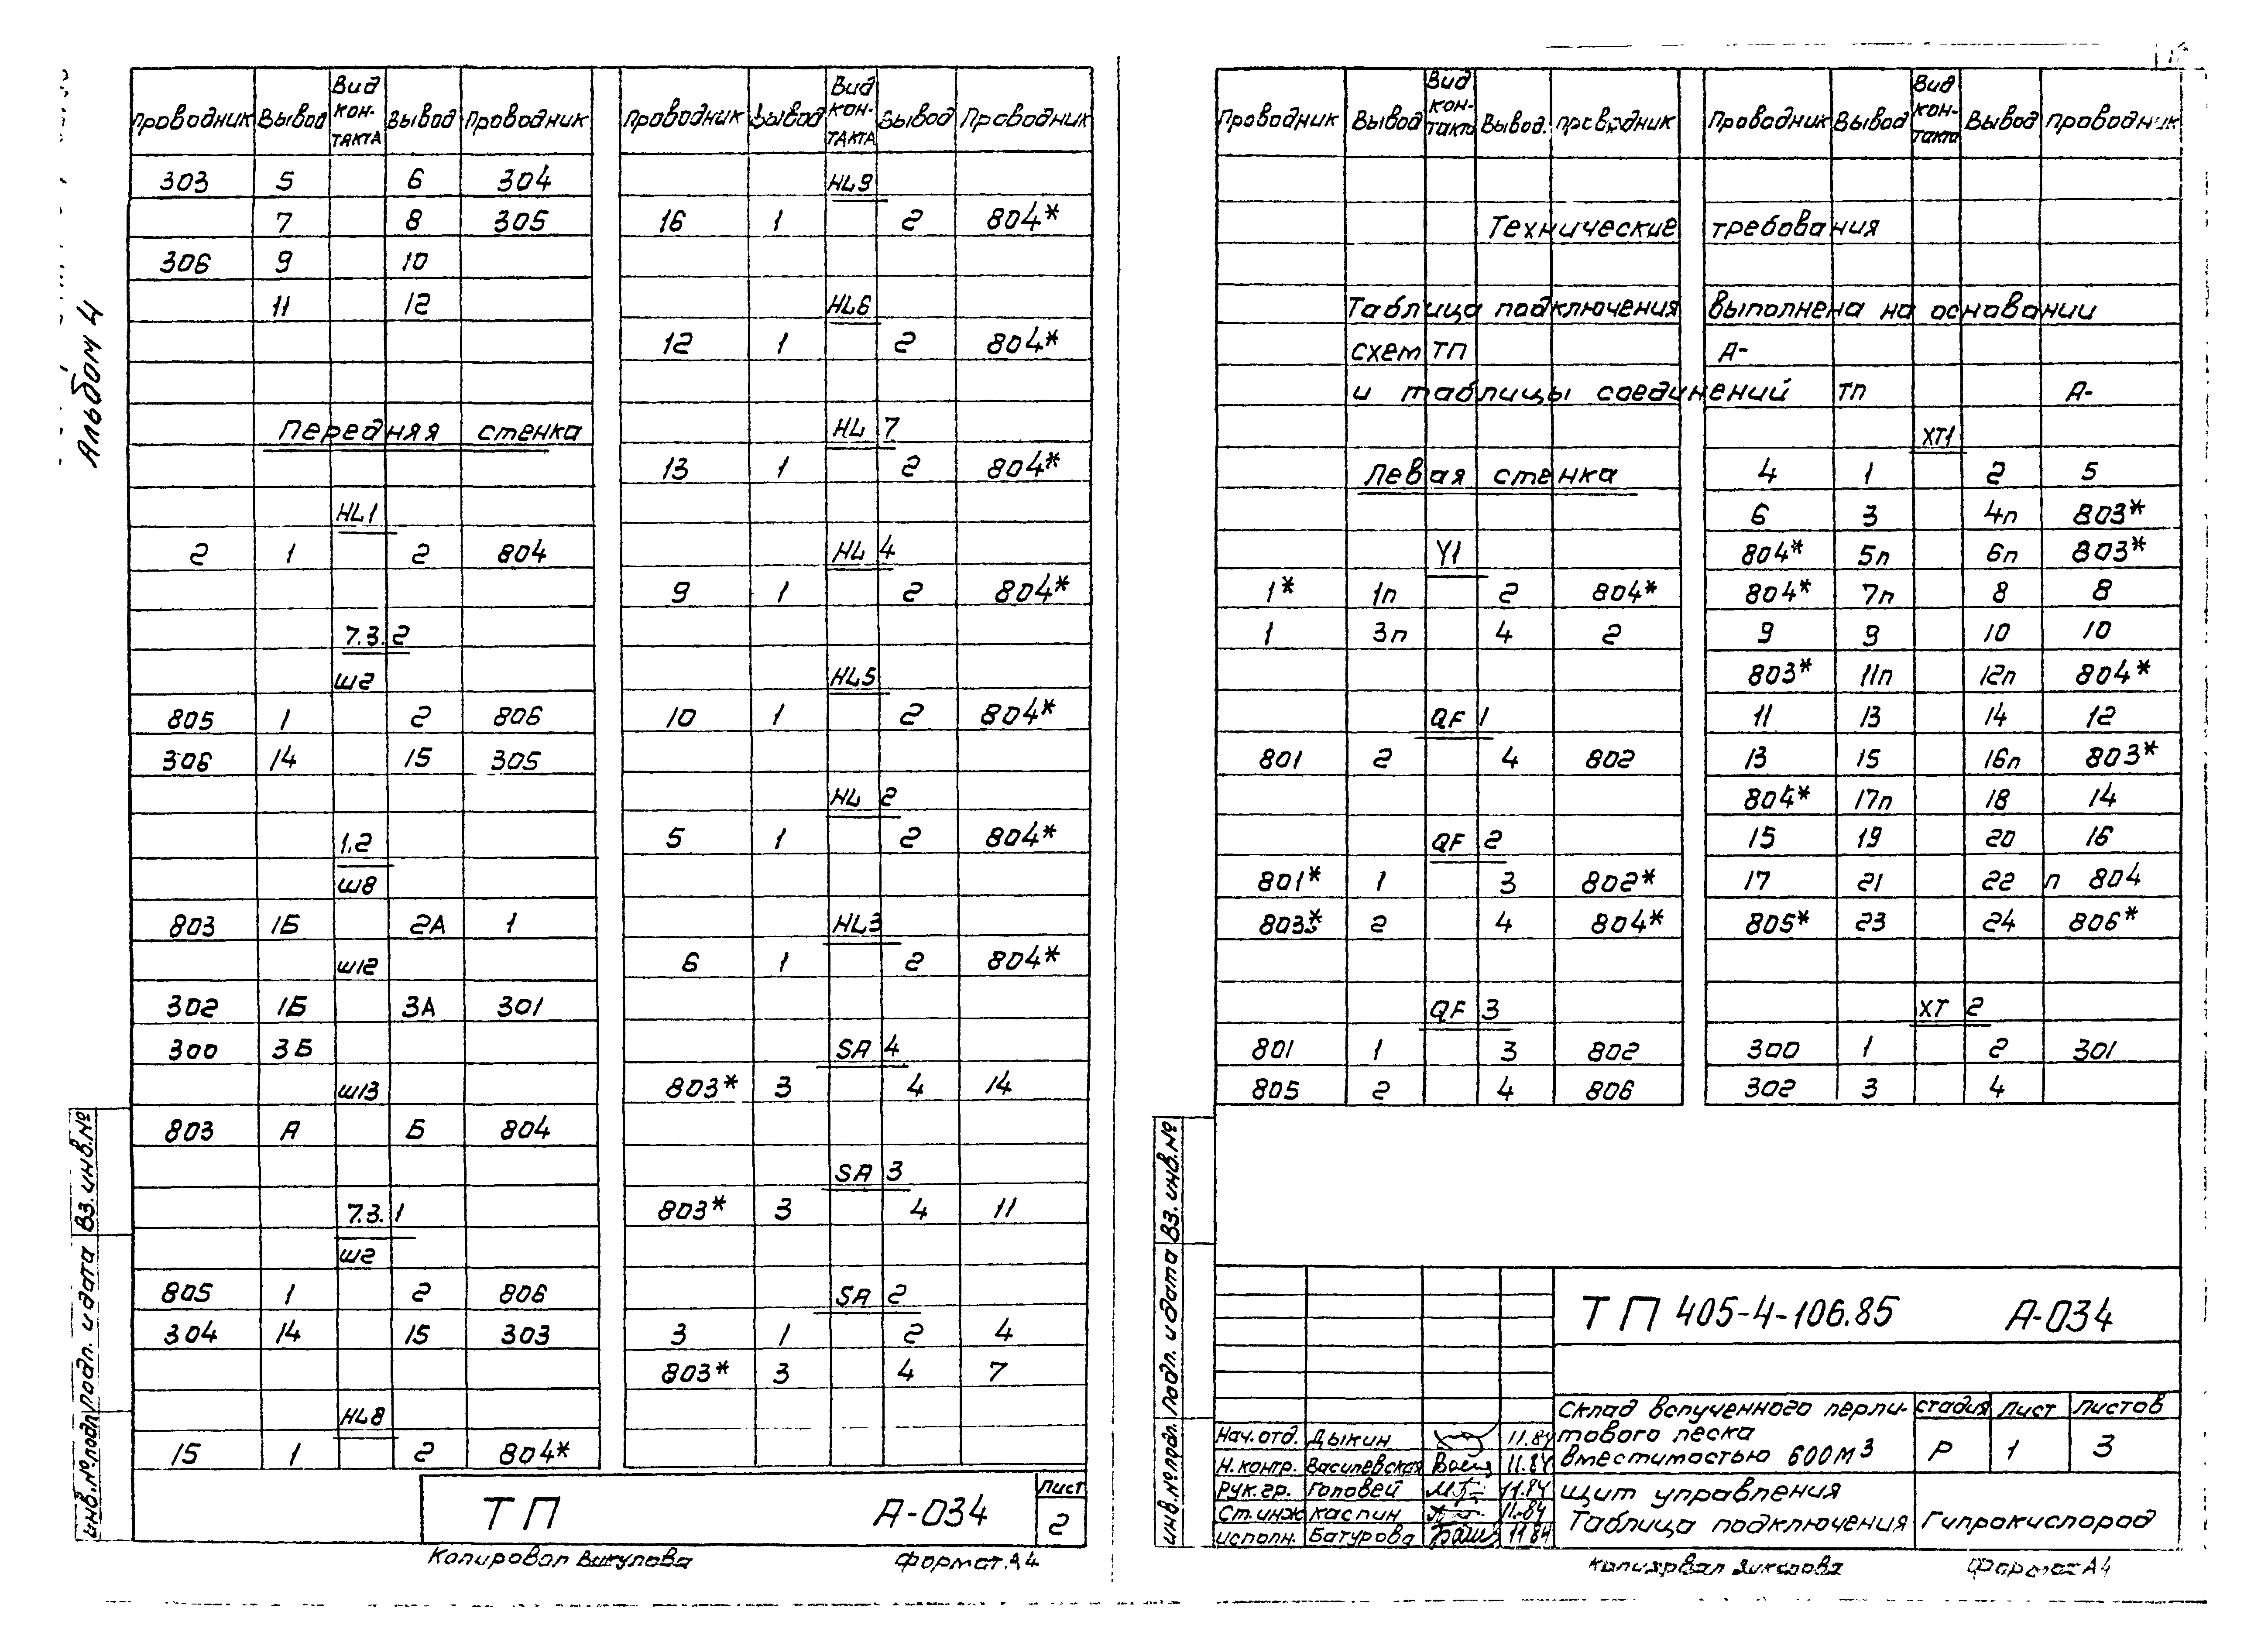 Альбом 4
Проводник Вывод Вид кон-такта Вывод Проводник
303 5 6 304
7 8 305
306 9 10
11 12
Передняя стенка
HL1
2 1 2 804
7.3.2
Ш2
805 1 2 806
306 14 15 305
1.2
Ш8
803 1Б 2А 1
Ш12
302 1Б 3А 301
300 3Б
Ш13
803 А Б 804
7.3.1
Ш2
805 1 2 806
304 14 15 303
HL8
15 1 2 804*
Проводник Вывод Вид кон-такта Вывод Проводник
HL9
16 1 2 804*
HL6
12 1 2 804*
HL7
13 1 2 804*
HL4
9 1 2 804*
HL5
10 1 2 804*
HL2
5 1 2 804*
HL3
6 1 2 804*
SA4
803* 3 4 14
SA3
803* 3 4 11
SA2
3 1 2 4
803* 3 4 7
Инв.№подл. Подп. и дата Вз. инв.№
ТП А-034
Лист
2
Копировал Викулова Формат А4
Проводник Вывод Вид кон-такта Вывод Проводник
Проводник Вывод Вид кон-такта Вывод Проводник
Технические требования
Таблица подключения выполнена на основании
схем ТП А-
и таблицы соединений ТП А-
Левая стенка
Y1
1* 1п 2 804*
1 3п 4 2
QF1
801 2 4 802
QF2
801* 1 3 802*
803* 2 4 804*
QF3
801 1 3 802
805 2 4 806
XT1
4 1 2 5
6 3 4п 803*
804* 5п 6п 803*
804* 7п 8 8
9 9 10 10
803* 11п 12п 804*
11 13 14 12
13 15 16п 803*
804* 17п 18 14
15 19 20 16
17 21 22 п 804
805* 23 24 806*
XT2
300 1 2 301
302 3 4
Инв.№подл. Подп. и дата Вз. инв.№
ТП 405-4-106.85 А-034
Склад вспученного перли-
тового песка
вместимостью 600м3
Стадия Лист Листов
Р 1 3
Нач.отд. Дыкин 11.84
Н.контр. Василевская 11.84
Рук.гр. Головей 11.84
Ст.инж Каспин 11.84
Исполн. Батурова 11.84
Щит управления
Таблица подключения
Гипрокислород
Копировал Викулова Формат А4